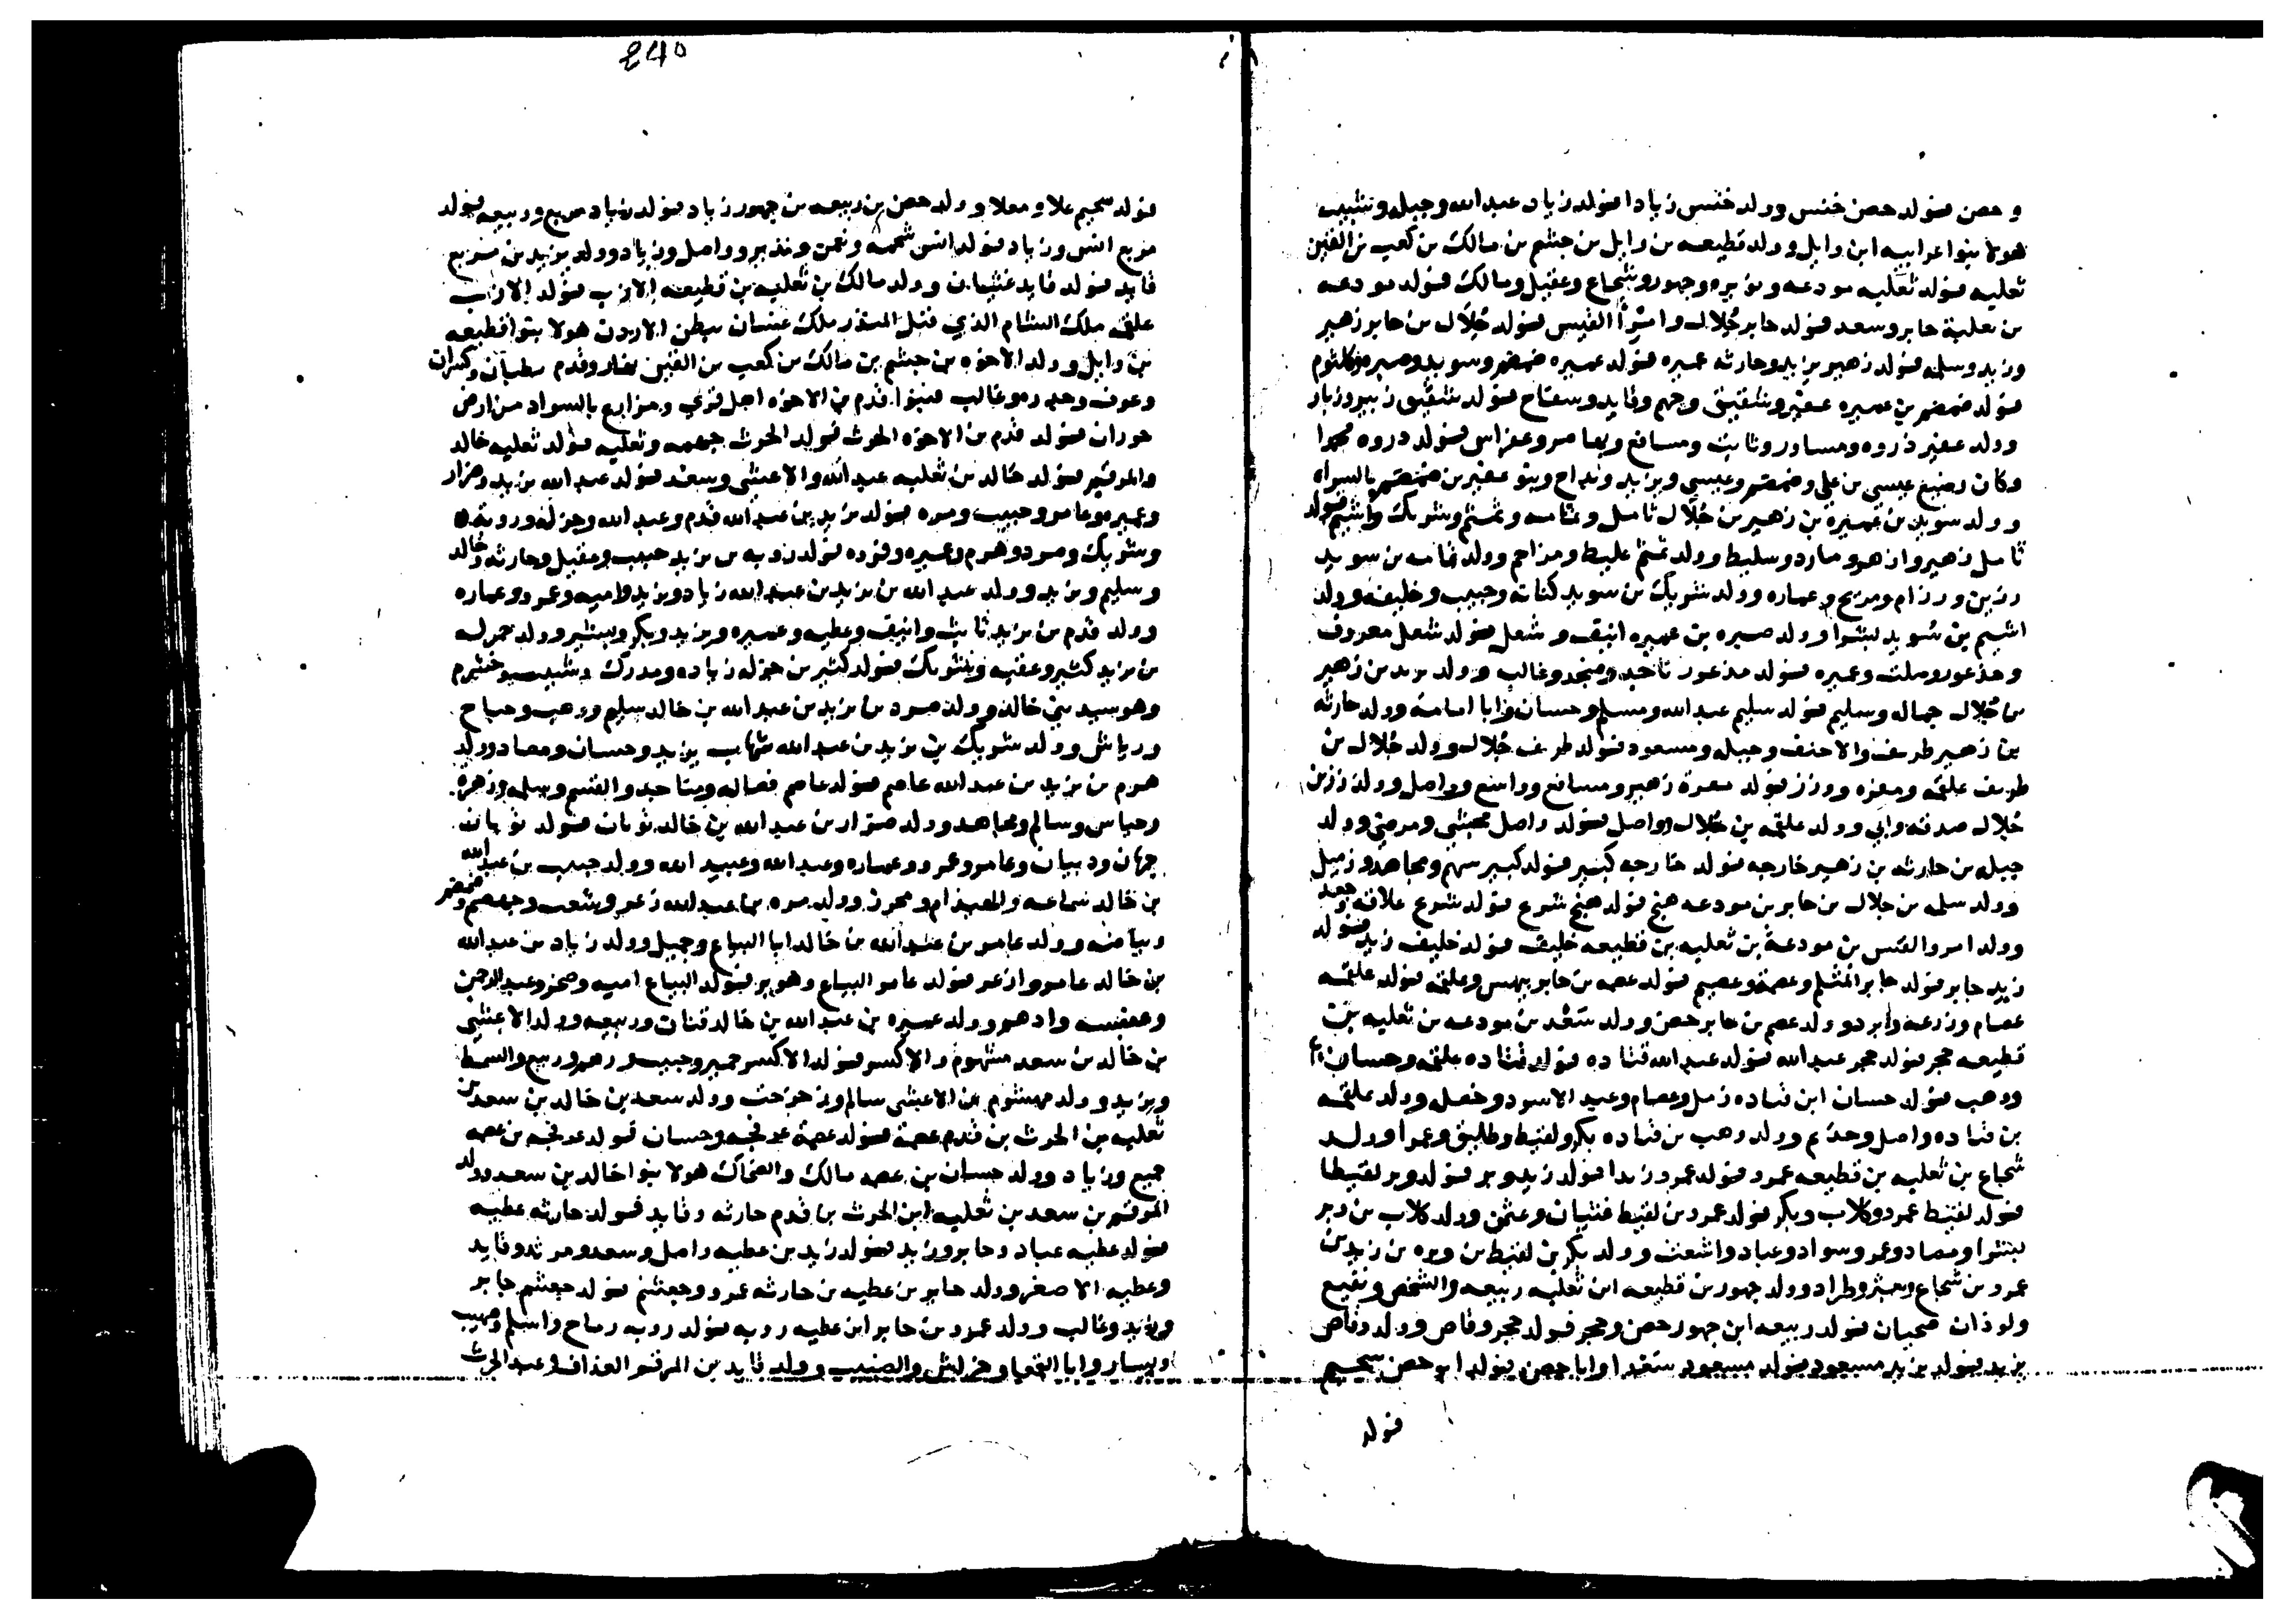 و حصن فولد حصن خنس وولد خنس زيادا فولد زياد عبدالله وجبله وشبيب
هولا بنوا عرابيه ابن وايل وولد قطيعه بن وايل بن جشم بن مالك بن كعب بن القين
ثعلبه فولد ثعلبه مودعه و وبره وجهور وشجاع وعقيل ومالك فولد مودعه
بن ثعلبة جابر وسعد فولد جابر جُلال وامرأ القيس فولد جُلال بن جابر زهير
وزيد وسلمه فولد زهير يزيد وحارثه عميره فولد عميره ضمضم وسويد وصبره وكلثوم
فولد ضمضم بن عميره عقير وشقيق وجهم وقايد وسفاح فولد شقيق زبير وزبار
وولد عقير ذروه ومساور وثابت ومسافع وعامر وعراس فولد دروه محمدا
وكان رضيع عيسي بن علي وضمضم وعيسي ويزيد ونداح وبنو عقير بن ضمضم بالسراه
وولد سويد بن عميره بن زهير بن جُلال ثامل وثمامه وغشم وشريك واشيم فولد
ثامل زهير وازهر ومارد وسليط وولد غشم عليط ومزاحم وولد ثمامه بن سويد
رزين ورزام ومريح وعماره وولد شريك بن سويد كنانه وحبيب وخليفه وولد
اشيم بن سويد لبنوا وولد صبره بن عميره انيف وشعل فولد شعل معروف
ومذعور وصلت وعميره فولد مذعور ناجيه ومنجد وغالب وولد يزيد بن زهير
بن جُلال جماله وسليم فولد سليم عبدالله ومسلم وحسان وابا امامه وولد حارثه
بن زهير طريف والاحنف وجبله ومسعود فولد طريف جُلال وولد جُلال بن
طريف علقمه ومعزه ورزز فولد معزة زهير ومسافع ورافع وواصل وولد رزز بن
جُلال صدقه وابي وولد علقمه بن جُلال وواصل فولد واصل محيشي ومرضي وولد
جبله بن حارثه بن زهير خارجه فولد خارجه كبير فولد كبير سهم ومجاهد وزميل
وولد سلمه بن جلال بن جابر بن مودعه هبنج فولد هبنج شرع فولد شرع علاقه وجعد
وولد امروالقيس بن مودعة بن ثعلبه بن قطيعه خليف فولد خليف زيد فولد
زيد جابر فولد جابر المثلم وعصمة وعصيم فولد عصمه بن جابر بيهس وعلقمه فولد علقمه
عصام وزرعه وابرد وولد عصم بن جابر حصن وولد سَعْد بن مودعه بن ثعلبه بن
قطيعه حجر فولد حجر عبدالله فولد عبدالله قتاده فولد قتاده علقمه وحسان
ووهب فولد حسان ابن قتاده زمل وعصام وعبد الاسود وخصله وولد علقمه
بن قتاده واصل وحذيم وولد وهب بن قتاده بكر ولقيط وطليق وعمرا وولد
شجاع بن ثعلبه بن قطيعه عمرو فولد عمرو زيدا فولد زيد وبر فولد وبر لقيطا
فولد لقيط عمرو وكلاب وبكر فولد عمرو بن لقيط فتيان وعثمن وولد كلاب بن وبر
بشرا ومصاد وعمر وسواد وعباد واشعث وولد بكر بن لقيط بن وبره بن زيد بن
عمرو بن شجاع وبشر وطراد وولد جهور بن قطيعه ابن ثعلبه ربيعه والشخص ونفيع
ولوذان ضحيان فولد ربيعه ابن جهور حصن وحجر فولد حجر وقاص وولد وقاص
يزيد فولد يزيد مسعود فولد مسعود سَعْدا وابا حصن فولد ابو حصن سحيم
فولد
٤٤٥
فولد سحيم علا ومعلا وولد حصن بن ربيعه بن جهور زياد فولد زياد مربع وربيعه فولد
مربع انس وزياد فولد انس شحمه ونمن ونذير وواصل وزياد وولد يزيد بن مربع
قايد فولد قايد عثيمان وولد مالك بن ثعلبه بن قطيعه الازب فولد الازب
علقمه ملك الشام الذي قتل المنذر ملك غسان ببطن الاردن هولا بنوا قطيعه
بن وايل وولد الاخوه بن جشم بن مالك بن كعب بن القين نفار وقدم سطبان وكسرات
وعوف وحيدره وغالب فبنوا قدم بن الاخوه اهل قري ومزارع بالسواد من ارض
حوران فولد قدم بن الاخوه الحرث فولد الحرث جهمه وثعلبه فولد ثعلبه خالد
والمرقع فولد خالد بن ثعلبه عبدالله والاعشي وسعد فولد عبد الله يزيد وضرار
وعميره وعامر وحبيب ومره فولد يزيد بن عبدالله قدم وعبد الله وحزله وروبه
وشريك ومرد وهرم وعميره وفروه فولد روبه بن يزيد حبيب وعقيل وحارثه وخالد
وسليم ويزيد وولد عبدالله بن يزيد بن عبدالله زياد ويزيد واميه وعمرو وعماره
وولد قدم بن يزيد ثابت وانيف وعطيه وعميره ويزيد وبكر وبشير وولد حمرله
بن يزيد كثير وعقبه وشريك فولد كثير بن حزله زياده ومدرك وشبيب وخثيم
وهو سيد بني خالد وولد مرد بن يزيد بن عبدالله بن خالد سليم ووهب وصباح
ورياش وولد شريك بن يزيد بن عبدالله شهاب يزيد وحسان ومصاد وولد
هرم بن يزيد بن عبدالله عاصم فولد عاصم فضاله ومتاحيد والقسم وسلمه وزهره
وحياس وسالم ومجاهد وولد ضرار بن عبدالله بن خالد ثوبان فولد ثوبان
جهان وذبيان وعامر وعمرو وعماره وعبدالله وعبيد الله وولد حبيب بن عبدالله
بن خالد سماعه والمعيذام ومحرز وولد مره بن عبدالله زعر وشعيب وجهضم وضمضم
وبيامنه وولد عامر بن عبدالله بن خالد ابا البياع وجميل وولد زياد بن عبدالله
بن خالد عامر وازعر فولد عامر البياع وهوبر فولد البياع اميه وصخر وعبدالرحمن
وعنبسه وادهم وولد عميره بن عبدالله بن خالد قنات وربيعه وولد الاعشي
بن خالد بن سعد مشهوم والاكسر فولد الاكسر حمير وحبيب وزهير وربيع والسمط
ويزيد وولد مهشوم بن الاعشي سالم ومزحزحت وولد سعد بن خالد بن سعد بن
ثعلبه بن الحرث بن قدم عصمة فولد عصمة عرفجه وحسان فولد عرفجه بن عصمه
جميع وزياد وولد حسان بن عصمه مالك والضحاك هولا بنوا خالد بن سعد وولد
المرقع بن سعد بن ثعلبه ابن الحرث بن قدم حارثه وقايد فولد حارثه عطيه
فولد عطيه عباد وجابر وزيد فولد زيد بن عطيه واصل وسعد ومرثد وقايد
وعطيه الاصغر وولد جابر بن عطيه بن حارثه عمرو وجعشم فولد جعشم جابر
ويزيد وغالب وولد عمرو بن جابر ابن عطيه روبه فولد روبه رماح واسلم وصهيب
ويسار وابا القعيا وخرليش والصبيب وولد قايد بن المرقع العذافر وعبد الحرث